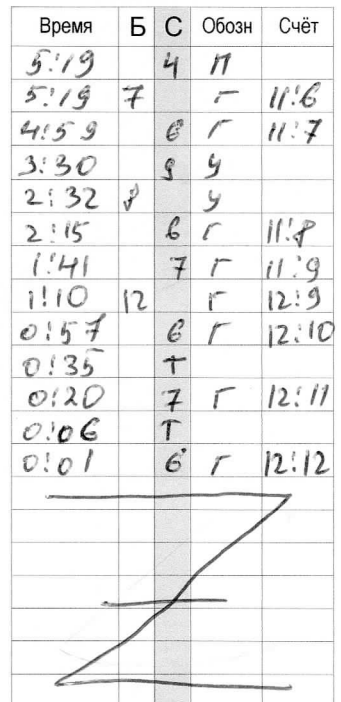 Время Б С Обозн Счёт
5:19 4 П
5:19 7 Г 11:6
4:59 6 Г 11:7
3:30 9 У
2:32 8 У
2:15 6 Г 11:8
1:41 7 Г 11:9
1:10 12 Г 12:9
0:57 6 Г 12:10
0:35 Т
0:20 7 Г 12:11
0:06 Т
0:01 6 Г 12:12